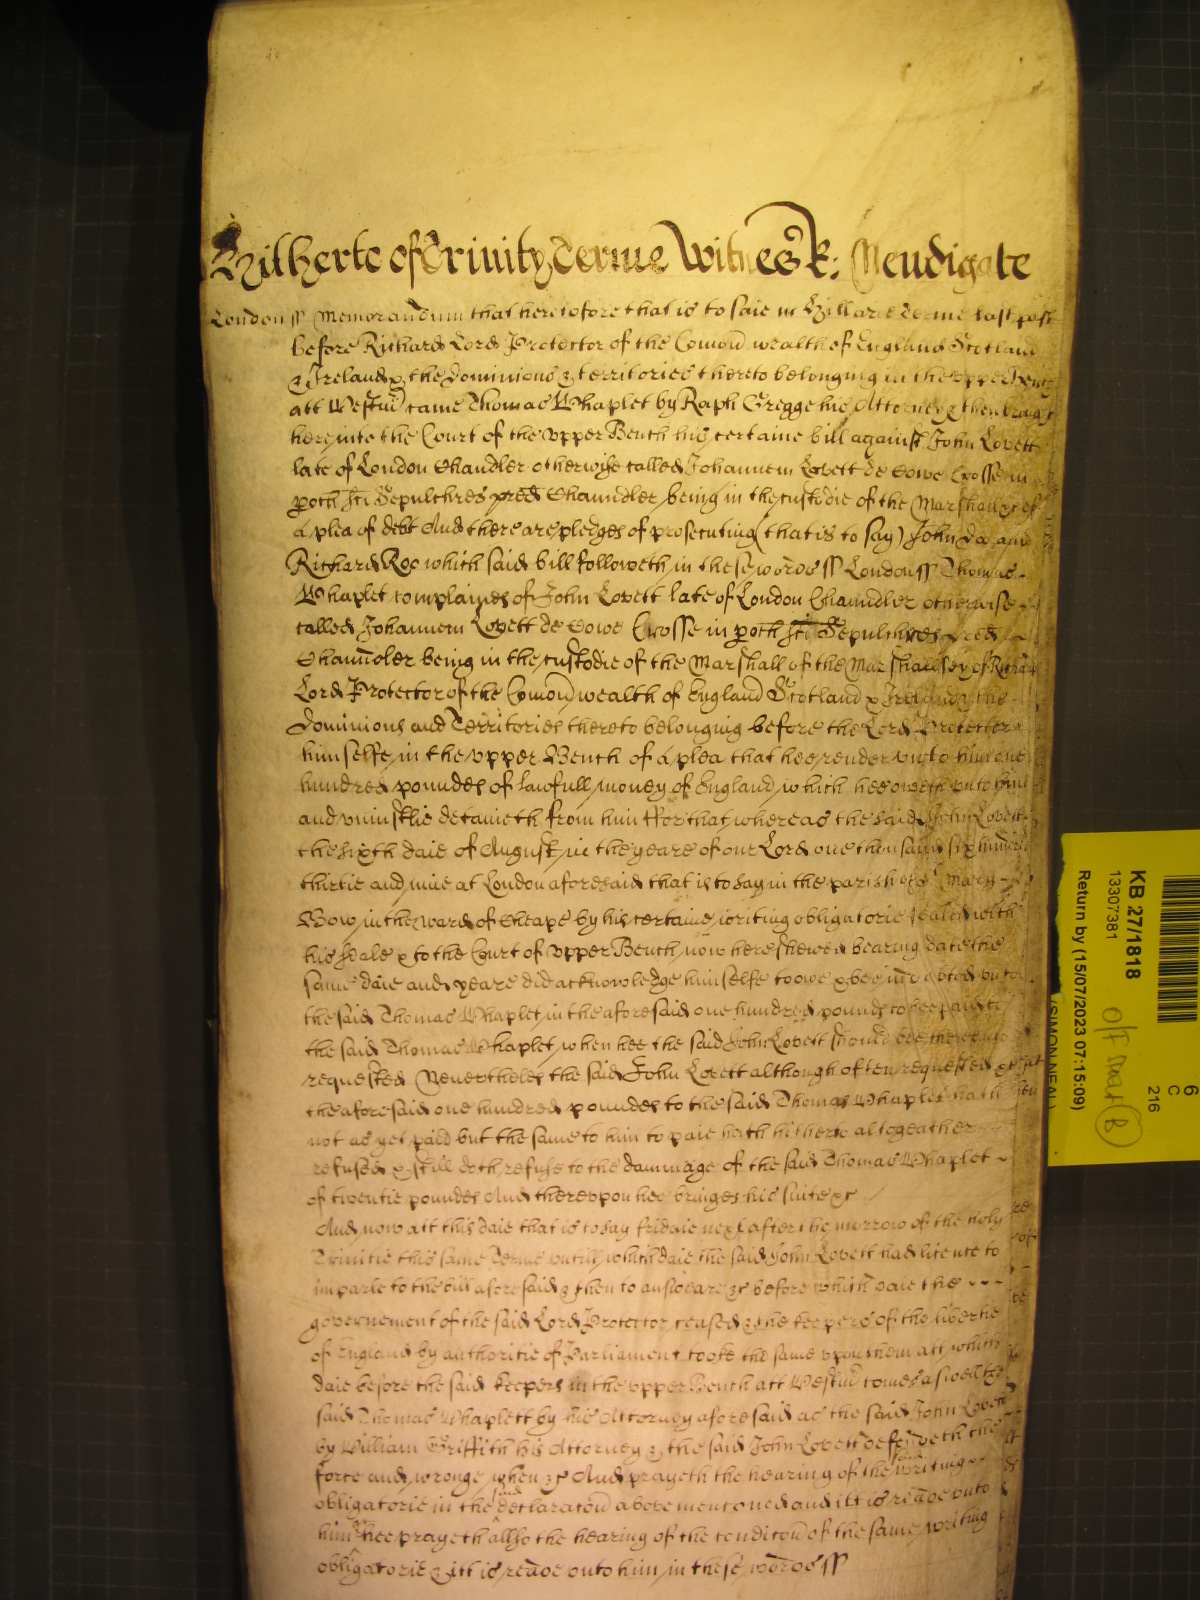 Hitherto of Trinity Terme Witnes R: Newdigate
London ss Memorandum that heretofore that is to saie in Hillarie Terme last past
before Richard Lord Protector of the Comon wealth of England Scotland
& Ireland & the dominions & territories thereto belonging in the upper Bench
att Westm came Thomas Whaplet by Raph Gregge his Attorney & then brought
here into the Court of the upper Bench his certaine bill against John Lovett
late of London Chandler otherwise called Johannem Lovett de Cowe Crosse in
poch Sci Sepulchres pred Chaundler being in the custodie of the Marshall &c of
a plea of debt And there are pledges of prosecuting (that is to say) John Doe and
Richard Roo which said bill followeth in these words ss London ss Thomas
Whaplet complaines of John Lovett late of London Chaundler otherwise
called Johannem Lovett de Cowe Crosse in poch Sci Sepulchres pred
Chaundler being in the custodie of the Marshall of the Marshallsey of Richard
Lord Protector of the Comon wealth of England Scotland & Ireland & the
dominions and Territories thereto belonging before the Lord Protector
himselfe in the upper Bench of a plea that hee render unto him one
hundred poundes of lawfull money of England which hee oweth unto him
and uniustlie detaineth from him ffor that whereas the said John Lovett
the sixth daie of August in the yeare of our Lord one thousand six hundred
thirtie and nine at London aforesaid that is to say in the parish of Mary
Bow in the ward of Cheape by his certaine writing obligatorie sealed with
his seale & to the Court of upper Bench now here shewed bearing date the
same daie and yeare did acknowledge himselfe to owe & bee indebted unto
the said Thomas Whaplet in the aforesaid one hundred pounds to bee paid to
the said Thomas Whaplet when hee the said John Lovett should bee thereunto
requested Neverthelesse the said John Lovett although often requested &c
the aforesaid one hundred poundes to the said Thomas Whaplet hath
not as yet paid but the same to him to paie hath hitherto altogeather
refused & still doth refuse to the dammage of the said Thomas Whaplet
of twentie poundes And thereupon hee bringes his suite &c
And now att this daie that is to say fridaie next after the morrow of the holy
Trinitie this same Terme untill which daie the said John Lovett had licence to
imparle to the bill aforesaid & then to answeare &c before which daie the
governement of the said Lord Protector ceased & the keepers of the libertie
of England by authoritie of Parliament tooke the same upon them att which
daie before the said keepers in the upper Bench att Westm comes aswell the
said Thomas Whaplett by his Attorney aforesaid as the said John Lovett
by William Griffith his Attorney & the said John Lovett defendeth the
force and wronge when &c And prayeth the hearing of the said writing
obligatorie in the said declaracon above mencioned and itt is reade unto
him & hee prayeth allso the hearing of the condicon of the same writing
obligatorie & itt is reade unto him in these wordes ss
KB 27/1818
13307381
Return by (15/07/2023 07:15:09)
(SIMON NEAL)
6
C
216